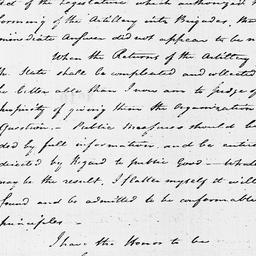 of the Legislature which authorized
forming of the Artillery into Brigades, the
immediate Answer did not appear to be
When the Returns of the Artillery
the State shall be compleated and collected
be better able than I now am to judge of
propriety of giving them the Organization
Question. – Public Measures should be
ded by full information, and be entire
directed by Regard to public Good – What
may be the result, I flatter myself it will
found and be admitted to be conformable
principles –
I have the Honor to be